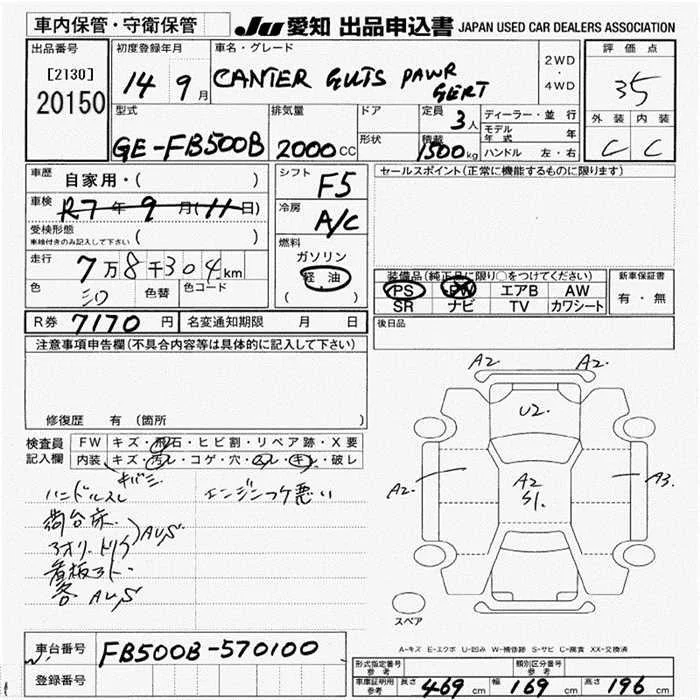 車内保管・守衛保管
JU 愛知 出品申込書 JAPAN USED CAR DEALERS ASSOCIATION
出品番号
[2130]
20150
初度登録年月
14 9月
車名・グレード
CANTER GUTS PAWR
GERT
2WD
・
4WD
評価点
35
外装 内装
C C
型式
GE-FB500B
排気量
2000CC
ドア
形状
定員
3人
積載
1500kg
ディーラー・並行
モデル年式 年
ハンドル 左・右
車歴
自家用・( )
車検
R7年9月(11日)
受検形態
車検付きのみ記入して下さい ( )
走行
7万8千304km
色
シロ
色替
色コード
シフト
F5
冷房
A/C
燃料
ガソリン
軽油
( )
セールスポイント(正常に機能するものに限ります)
装備品(純正品に限り○をつけてください)
PS PW エアB AW
SR ナビ TV カワシート
新車保証書
有・無
R券 7170円
名変通知期限 月 日
後日品
注意事項申告欄(不具合内容等は具体的に記入して下さい)
修復歴 有 (箇所 )
検査員
記入欄
FW キズ・飛石・ヒビ割・リペア跡・X要
内装 キズ・汚レ・コゲ・穴・スレ・キレ・破レ
キバミ
ハンドルスレ
エンジンつケ悪い
荷台床
アオリ・トリイ
AUS
看板アト
各 AUS
A2 A2
U2
A2
S1
A2
A3
スペア
A-キズ E-エクボ U-凹み W-補修跡 S-サビ C-腐食 XX-交換済
車台番号
FB500B-570100
登録番号
形式指定番号
参考
類別区分番号
参考
車庫証明用
参考
長さ 469cm 幅 169cm 高さ 196cm